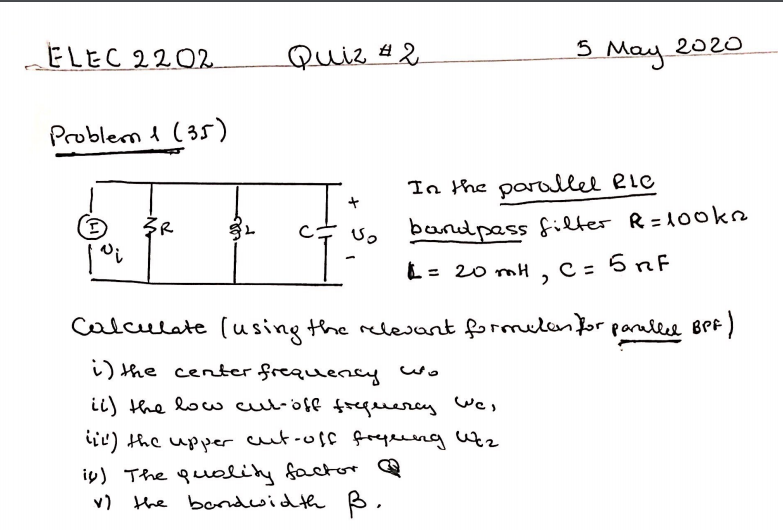 ELEC 2202 Quiz #2 5 May 2020
Problem 1 (35)
In the parallel RLC
bandpass filter R=100kΩ
L = 20 mH, C = 5 nF
I R L C + vo -
vi
Calculate (using the relevant formulas for parallel BPF)
i) the center frequency ωo
ii) the low cut-off frequency ωc1
iii) the upper cut-off frequency ωc2
iv) The quality factor Q
v) the bandwidth β.